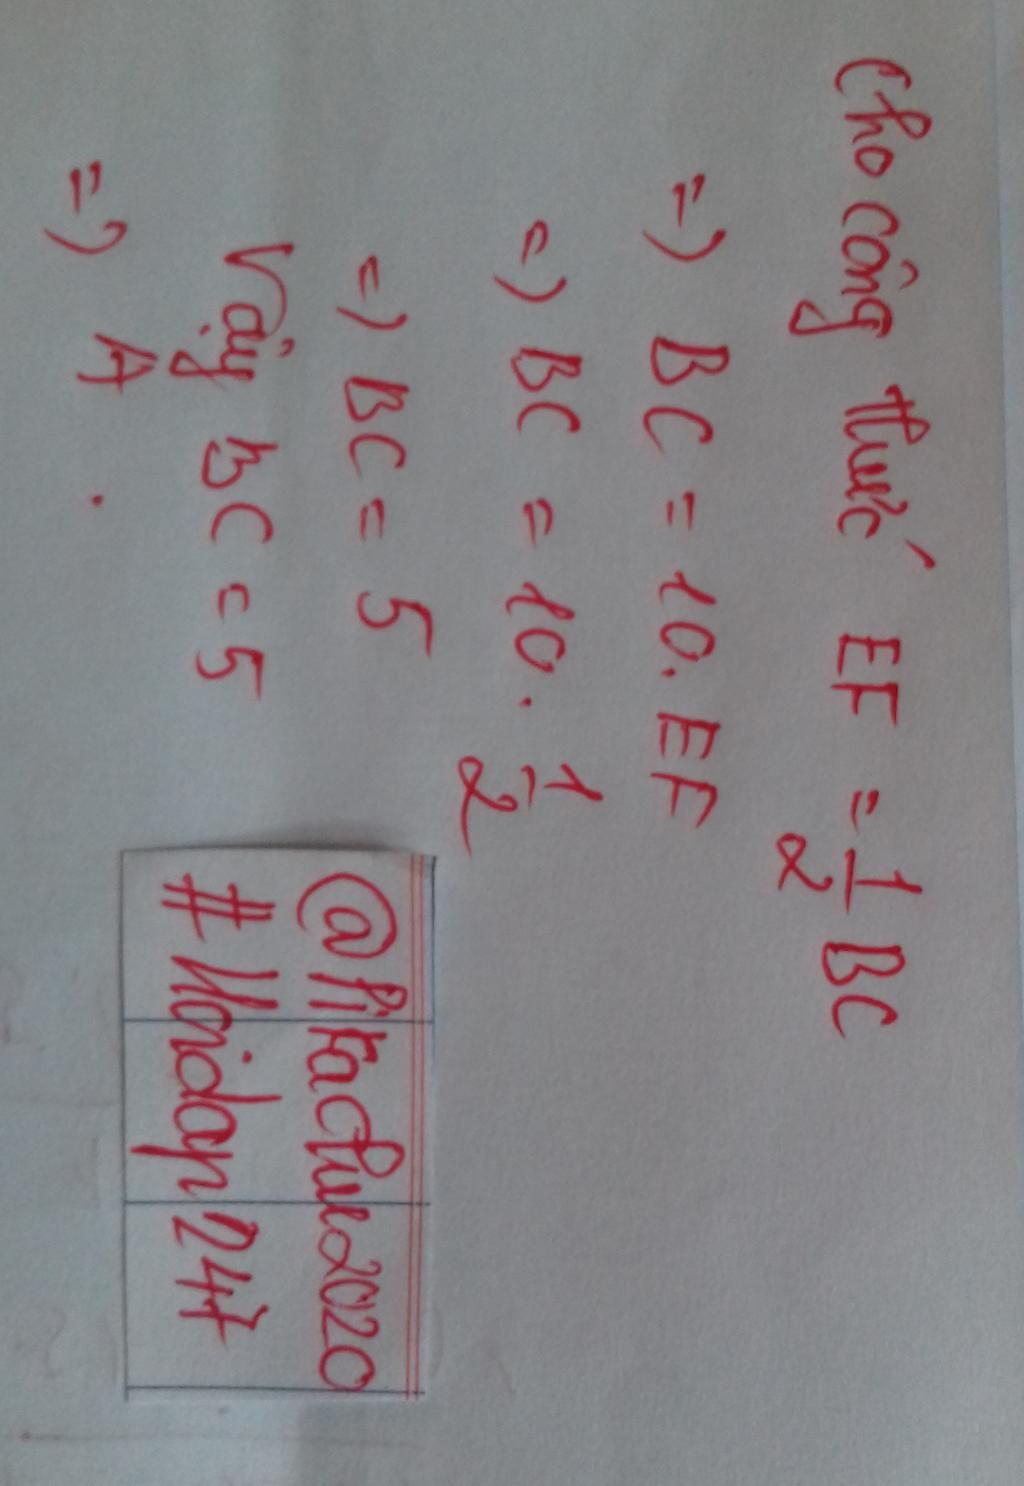 Cho công thức EF = 1/2 BC
=> BC = 10. EF
=> BC = 10. 1/2
=> BC = 5
Vậy BC = 5
=> A.
@Pikachuu2020
#Hoidap247